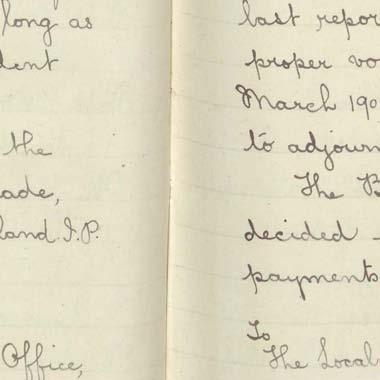 long as
dent
the
ade,
land I.P.
Office,
last repor
proper vo
March 190
to adjourn
The B
decided -
payments
To
The Local